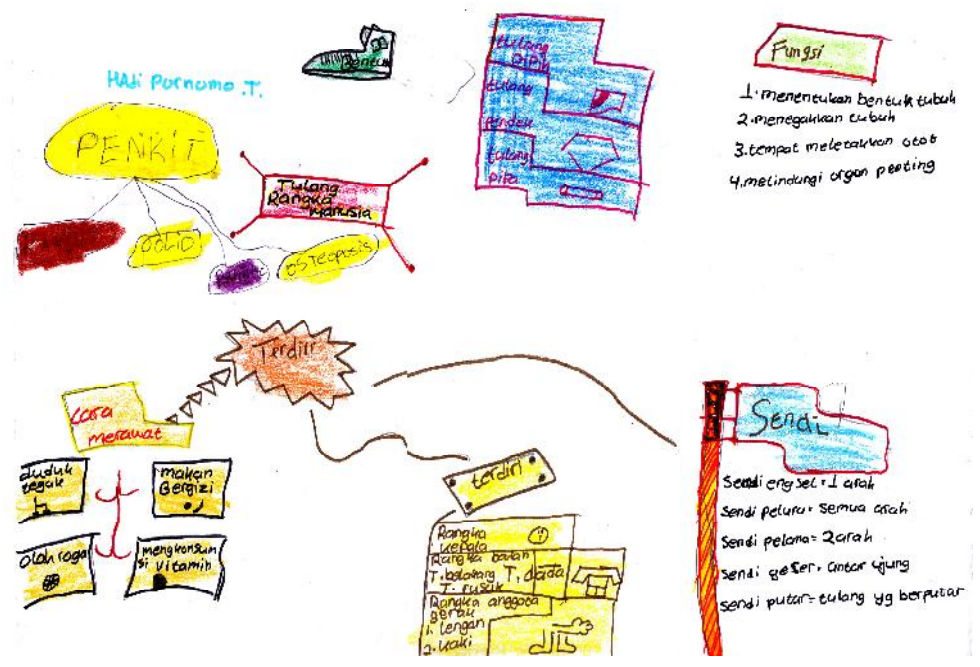 HAdi Purnomo .T.
PENKIT
OSTEOPOSIS
Tulang
Rangka
Manusia
Bentuk
tulang
PiPih
tulang
Pendek
tulang
Pipa
Fungsi
1. menentukan bentuk tubuh
2. menegakkan tubuh
3. tempat meletakkan otot
4. melindungi organ penting
Terdiri
Cara
merawat
duduk
tegak
makan
Bergizi
Olah raga
mengkonsum
si vitamin
terdiri
Rangka
kepala
Rangka badan
T. belakang T. dada
T. rusuk
Rangka anggota
gerak
1. lengan
2. kaki
Sendi
Sendi engsel = 1 arah
Sendi peluru = Semua arah
Sendi pelana = 2 arah
sendi geser = antar ujung
sendi putar = tulang yg berputar